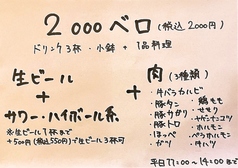 2000ベロ（税込2000円）
ドリンク3杯・小鉢+1品料理
生ビール
+
サワー・ハイボール系
※生ビール1杯まで
+500円（税込550円）で生ビール3杯可
+
肉（3種類）
・牛バラカルビ
・豚タン
・豚サガリ
・豚トロ
・ほっぺ
・ガツ
・鶏もも
・せせり
・ヤゲンナンコツ
・ホルモン
・ペラホルモン
平日17:00〜19:00まで